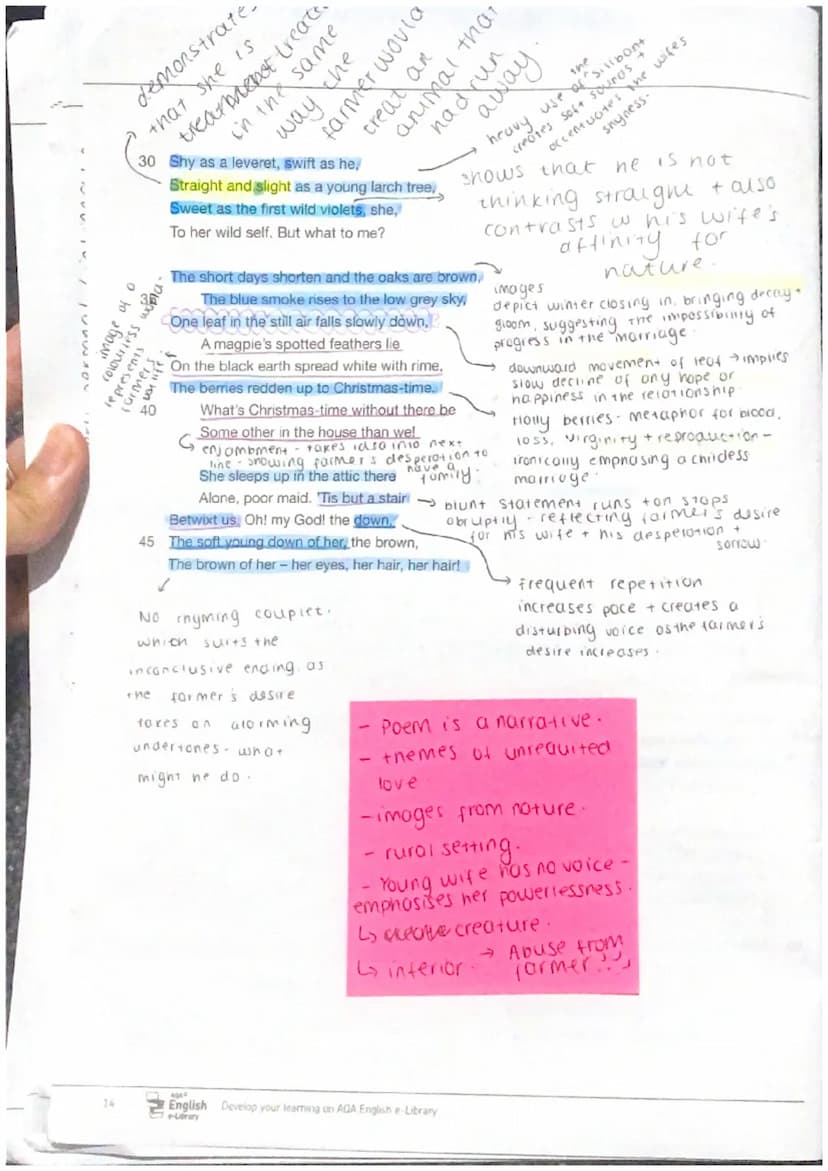 demonstrates
that she is
treated
in the same
way the
farmer would
treat an
animal that
had run
away.
heavy use of the sibilant
creates soft sounds +
accentuates the wifes
shyness.
30 Shy as a leveret, swift as he,
Straight and slight as a young larch tree,
Sweet as the first wild violets, she,
To her wild self. But what to me?
shows that he is not
thinking straight + also
contrasts w his wife's
affinity for
nature.
The short days shorten and the oaks are brown,
35 The blue smoke rises to the low grey sky,
One leaf in the still air falls slowly down,
A magpie's spotted feathers lie
On the black earth spread white with rime,
The berries redden up to Christmas-time.
40 What's Christmas-time without there be
Some other in the house than we!
image of a
colourless world.
represents
farmers
images
depict winter closing in, bringing decay +
gloom, suggesting the impossibility of
progress in the marriage.
downward movement of leaf → implies
slow decline of any hope or
happiness in the relationship.
Holly berries - metaphor for blood,
loss, virginity + reproduction -
ironically emphasing a childess
marriage.
enjambment - takes idea into next
line - showing farmer's desperation to
have a
family.
She sleeps up in the attic there
Alone, poor maid. 'Tis but a stair
Betwixt us. Oh! my God! the down,
45 The soft young down of her, the brown,
The brown of her – her eyes, her hair, her hair!
blunt statement runs + on stops
abruptly - reflecting farmer's desire
for his wife + his desperation +
sorrow.
frequent repetition
increases pace + creates a
disturbing voice as the farmer's
desire increases.
No rhyming couplet.
which suits the
inconclusive ending, as
the farmer's desire
takes on alarming
undertones - what
might he do.
- Poem is a narrative.
- themes of unrequited
love
- images from nature.
- rural setting.
- Young wife has no voice -
emphasises her powerlessness.
↳ creature.
↳ inferior. → Abuse from
farmer...
14 AQA English e-Library Develop your learning on AQA English e-Library